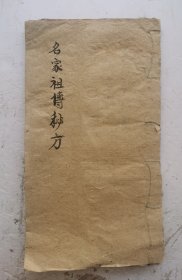 名家祖傳秘方